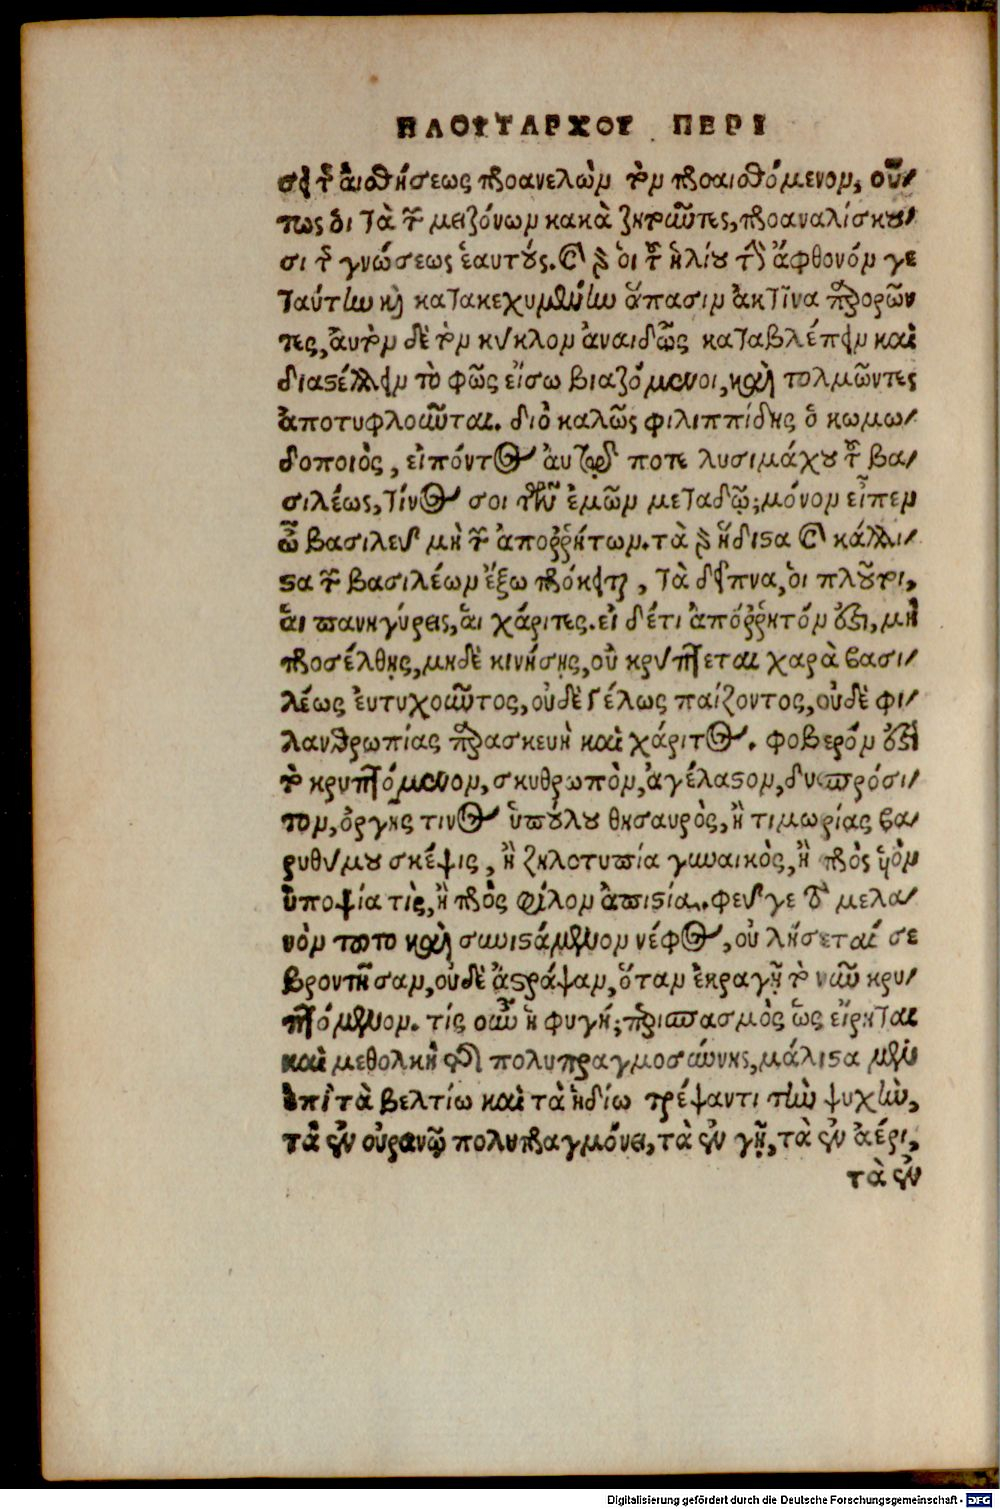 ΠΛΟΥΤΑΡΧΟΥ ΠΕΡΙ
σει τῆς αἰσθήσεως προανελὼν τὸν προαισθόμενον, οὕ-
τως οἱ τὰ τῶν μειζόνων κακὰ ζητοῦντες, προαναλίσκου-
σι τῆς γνώσεως ἑαυτούς. καὶ γὰρ οἱ τοῦ ἡλίου τὴν ἄφθονόν γε
ταύτην καὶ κατακεχυμένην ἅπασιν ἀκτῖνα παρορῶν
τες, αὐτὸν δὲ τὸν κύκλον ἀναιδῶς καταβλέπειν καὶ
διαστέλλειν τὸ φῶς εἴσω βιαζόμενοι, καὶ τολμῶντες
ἀποτυφλοῦνται. διὸ καλῶς φιλιππίδης ὁ κωμω-
δοποιὸς, εἰπόντος αὐτῷ ποτε λυσιμάχου τοῦ βα-
σιλέως, τίνος σοι τῶν ἐμῶν μεταδῶ; μόνον εἶπεν
ὦ βασιλεῦ μὴ τῶν ἀποῤῥήτων. τὰ γὰρ ἥδιστα καὶ κάλλι-
στα τῶν βασιλέων ἔξω πρόκειται, τὰ δεῖπνα, οἱ πλοῦτοι,
αἱ πανηγύρεις, αἱ χάριτες. εἰ δέ τι ἀπόῤῥητόν ἐστι, μὴ
προσέλθῃς, μηδὲ κινήσῃς, οὐ κρύπτεται χαρὰ βασι-
λέως εὐτυχοῦντος, οὐδὲ γέλως παίζοντος, οὐδὲ φι-
λανθρωπίας παρασκευὴ καὶ χάριτος. φοβερόν ἐστι
τὸ κρυπτόμενον, σκυθρωπὸν, ἀγέλαστον, δυσπρόσι-
τον, ὀργῆς τινος ὑπούλου θησαυρὸς, ἢ τιμωρίας βα-
ρυθύμου σκέψις, ἢ ζηλοτυπία γυναικὸς, ἢ πρὸς υἱὸν
ὑποψία τὶς, ἢ πρὸς φίλον ἀπιστία. φεῦγε τὸ μελα-
νὸν τοτο καὶ συνιστάμενον νέφος, οὐ λήσεταί σε
βροντῆσαν, οὐδὲ ἀστράψαν, ὅταν ἐκραγῇ τὸ νῦν κρυ-
πτόμενον. τίς οὖν ἡ φυγή; περισπασμὸς ὡς εἴρηται
καὶ μεθολκὴ τῆς πολυπραγμοσύνης, μάλιστα μὲν
ἐπὶ τὰ βελτίω καὶ τὰ ἡδίω τρέψαντι τὴν ψυχὴν,
τὰ ἐν οὐρανῷ πολυπραγμόνει, τὰ ἐν γῇ, τὰ ἐν ἀέρι,
τὰ ἐν
Digitalisierung gefördert durch die Deutsche Forschungsgemeinschaft - DFG